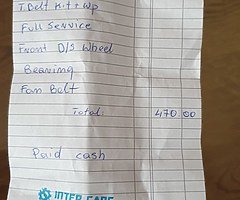 T.Belt kit + wp
Full Service
Front D/S Wheel
Bearing
Fan Belt
Total: 470.00
Paid cash
INTER CARS